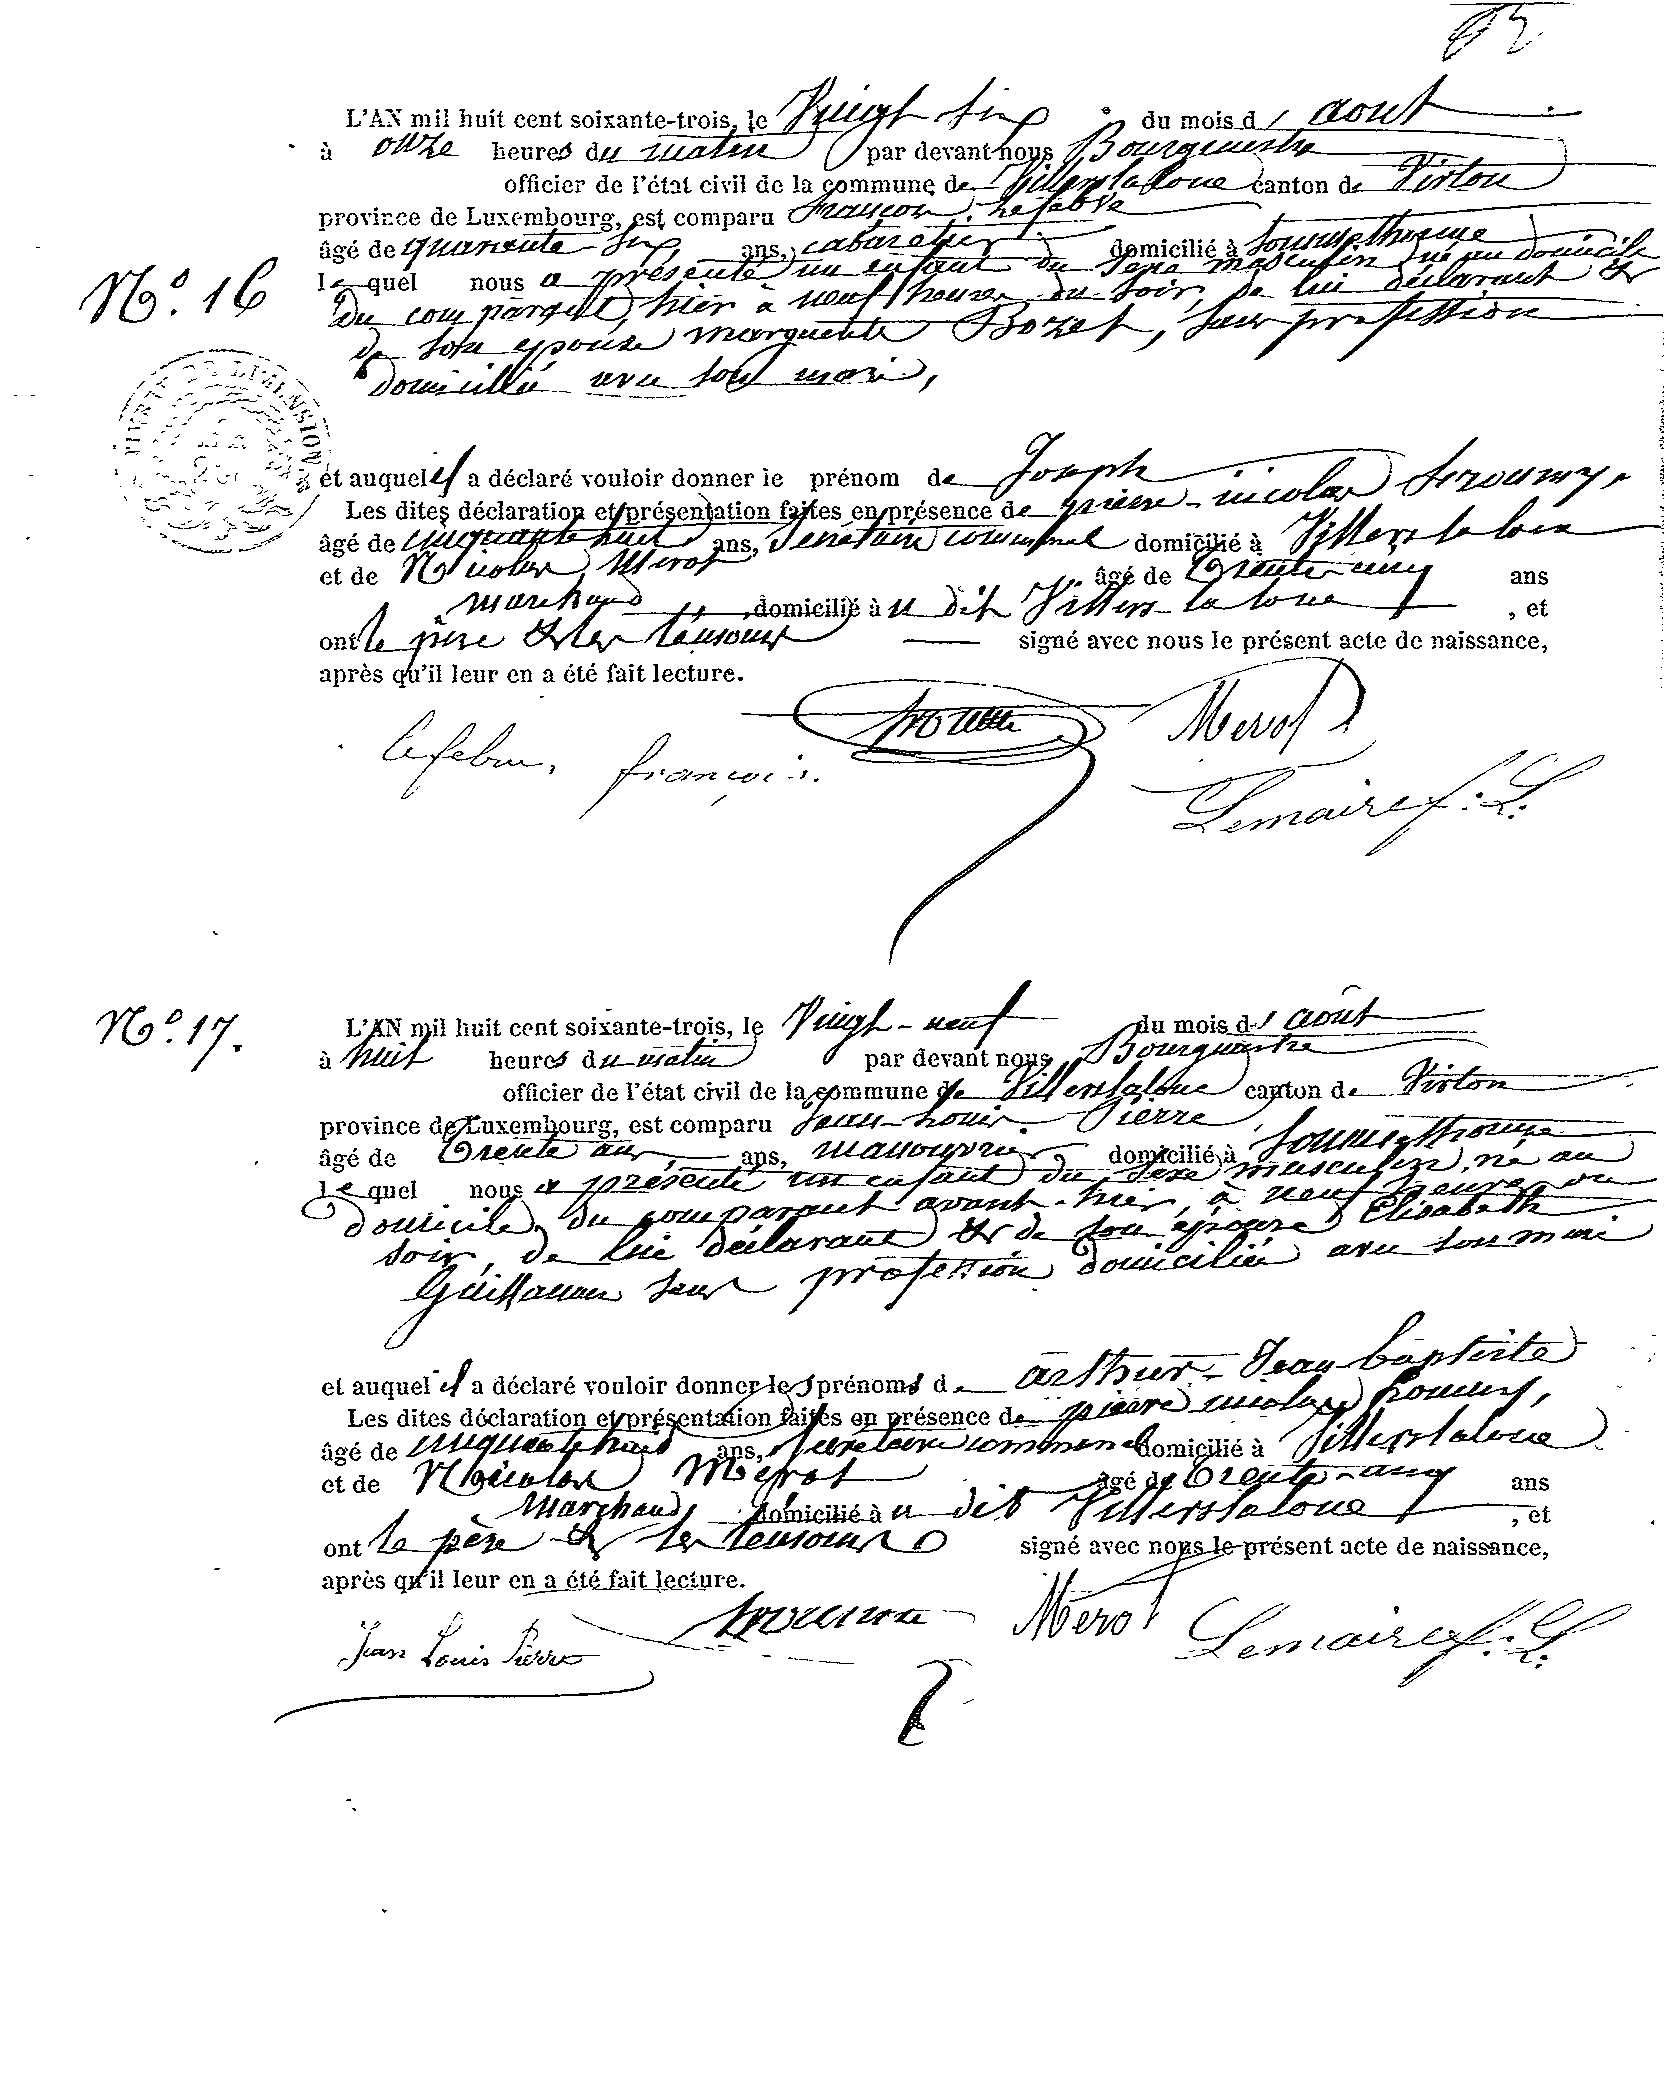 L'AN mil huit cent soixante-trois, le Vingt six du mois d' aout
à onze heures du matin par devant nous Bourgmestre
officier de l'état civil de la commune de Villerslaloue canton de Virton
province de Luxembourg, est comparu François Lefebvre
âgé de quarante-six ans, cabaretier domicilié à Sommethonne
N° 16
lequel nous a présenté un enfant du sexe masculin né au domicile
du comparant, hier à neuf heures du soir, de lui déclarant &
de son épouse Marguerite Bozet, sans profession
domiciliée avec son mari,
et auquel il a déclaré vouloir donner le prénom de Joseph
Les dites déclaration et présentation faites en présence de pierre-nicolas
âgé de cinquante huit ans, Secrétaire communal domicilié à Villers la loue
et de Nicolas Merot âgé de Trente-cinq ans
marchand domicilié à u dit Villers-la loue, et
ont le père & les témoins signé avec nous le présent acte de naissance,
après qu'il leur en a été fait lecture.
Merot
Lefebvre, françois.
Lemaire f. L.
N° 17.
L'AN mil huit cent soixante-trois, le Vingt-neuf du mois d' août
à huit heures du matin par devant nous Bourgmestre
officier de l'état civil de la commune de Villerslaloue canton de Virton
province de Luxembourg, est comparu Jean-Louis Pierre,
âgé de Trente ans, ans, manouvrier domicilié à Sommethonne
lequel nous a présenté un enfant du sexe masculin, né au
domicile du comparant avant-hier, à neuf heures du
soir, de lui déclarant & de son épouse Elisabeth
Guillaume sans profession domiciliée avec son mari
et auquel il a déclaré vouloir donner les prénoms de arthur-Jean baptiste
Les dites déclaration et présentation faites en présence de pierre nicolas
âgé de cinquante huit ans, Secrétaire communal domicilié à Villerslaloue
et de Nicolas Merot âgé de Trente-cinq ans
Marchand domicilié à u dit Villerslaloue, et
ont le père & les témoins signé avec nous le présent acte de naissance,
après qu'il leur en a été fait lecture.
Jean Louis Pierre Merot Lemaire f. L.